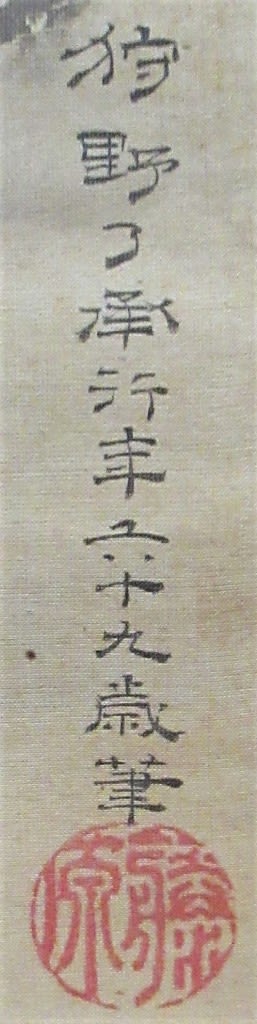 狩野了承行年六十九歳筆
藤原